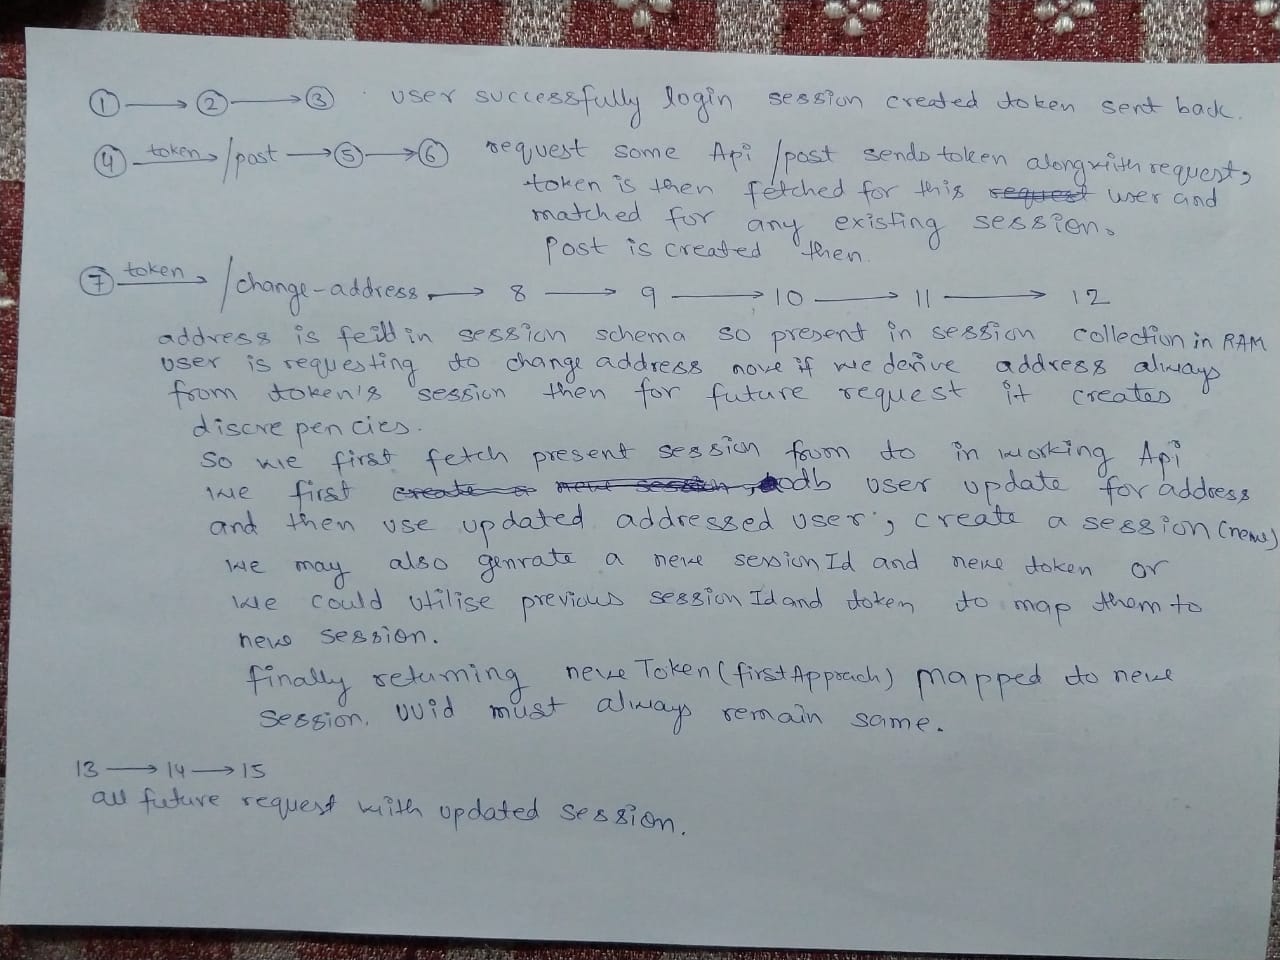 ① → ② → ③ . user successfully login session created token sent back.
④ token → /post → ⑤ → ⑥ request some Api /post sends token alongwith request,
token is then fetched for this request user and
matched for any existing session.
Post is created then.
⑦ token → /change-address → 8 → 9 → 10 → 11 → 12
address is feild in session schema so present in session collection in RAM
user is requesting to change address now if we derive address always
from token's session then for future request it creates
discrepencies.
So we first fetch present session from to in working Api
we first create a new session, db user update for address
and then use updated addressed user, create a session (new)
we may also genrate a new session Id and new token or
we could utilise previous session Id and token to map them to
new session.
finally returning new Token (first Approach) mapped to new
session. uuid must always remain same.
13 → 14 → 15
all future request with updated session.